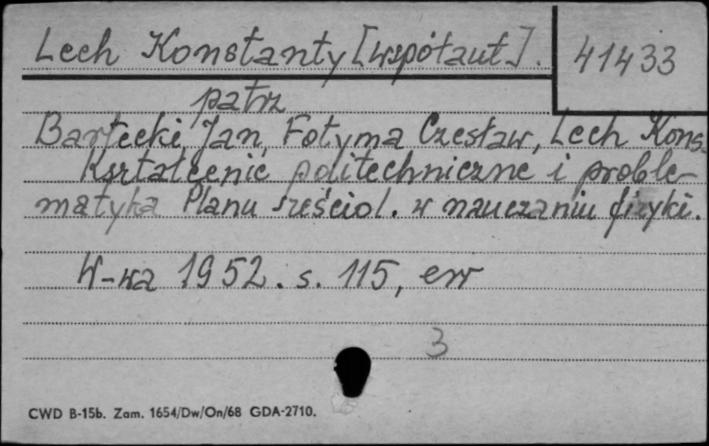 Lech Konstanty [współaut.].
41433
patrz
Bartecki, Jan, Fotyma Czesław, Lech Kons.
Kształcenie politechniczne i proble-
matyka Planu sześciol. w nauczaniu fizyki.
W-wa 1952. s. 115, err
3
CWD B-15b. Zam. 1654/Dw/On/68 GDA-2710.